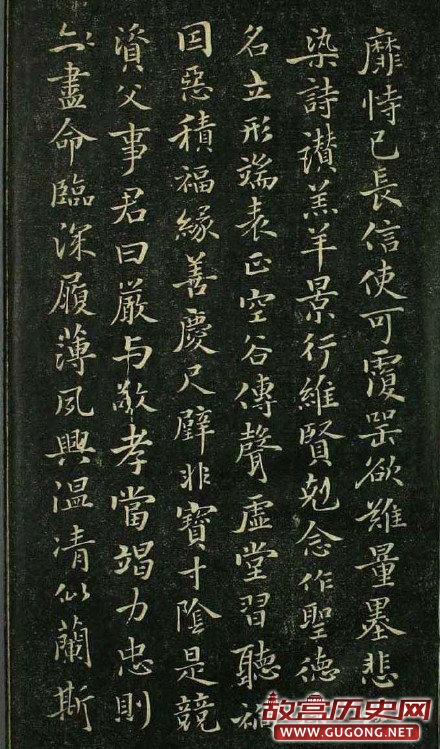 靡恃已長信使可覆器欲難量墨悲
染詩讃羔羊景行維賢剋念作聖德
名立形端表正空谷傳聲虛堂習聽禍
因惡積福緣善慶尺璧非寶寸陰是競
資父事君曰嚴与敬孝當竭力忠則
盡命臨深履薄夙興温凊似蘭斯
故宫历史网
WWW.GUGONG.NET